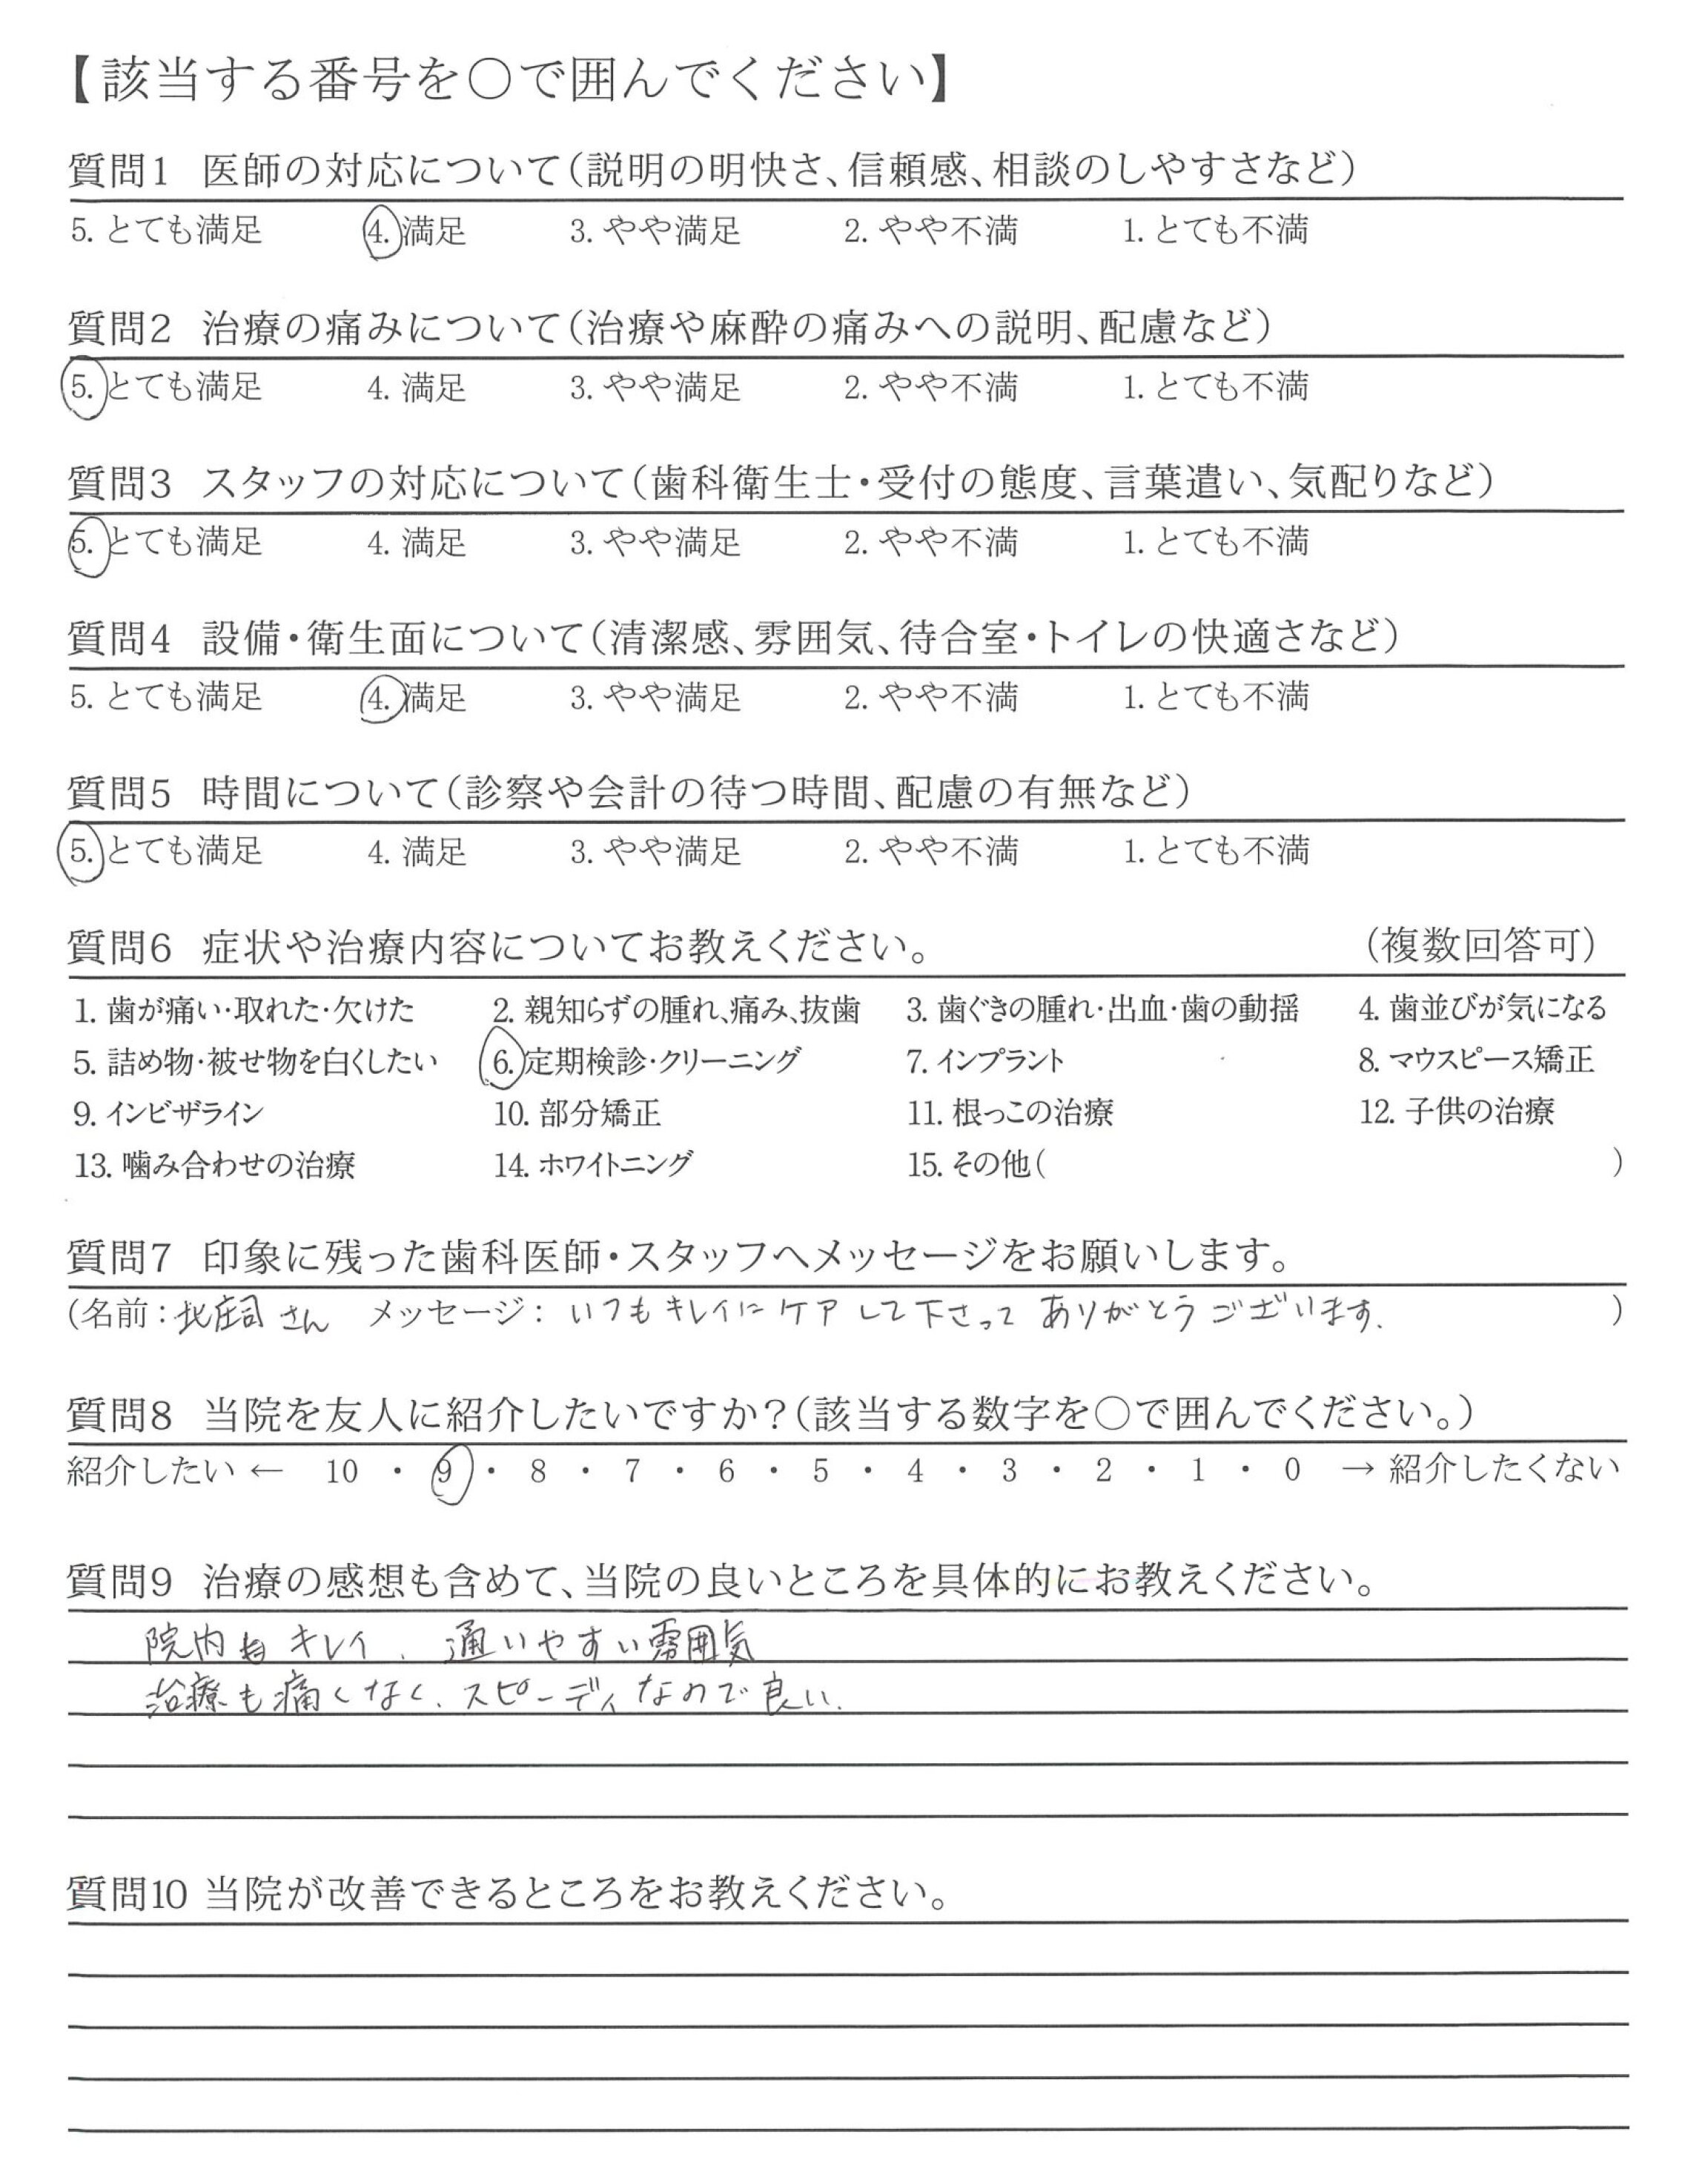 【該当する番号を○で囲んでください】
質問1 医師の対応について（説明の明快さ、信頼感、相談のしやすさなど）
5. とても満足 4. 満足 3. やや満足 2. やや不満 1. とても不満
質問2 治療の痛みについて（治療や麻酔の痛みへの説明、配慮など）
5. とても満足 4. 満足 3. やや満足 2. やや不満 1. とても不満
質問3 スタッフの対応について（歯科衛生士・受付の態度、言葉遣い、気配りなど）
5. とても満足 4. 満足 3. やや満足 2. やや不満 1. とても不満
質問4 設備・衛生面について（清潔感、雰囲気、待合室・トイレの快適さなど）
5. とても満足 4. 満足 3. やや満足 2. やや不満 1. とても不満
質問5 時間について（診察や会計の待つ時間、配慮の有無など）
5. とても満足 4. 満足 3. やや満足 2. やや不満 1. とても不満
質問6 症状や治療内容についてお教えください。 （複数回答可）
1. 歯が痛い・取れた・欠けた 2. 親知らずの腫れ、痛み、抜歯 3. 歯ぐきの腫れ・出血・歯の動揺 4. 歯並びが気になる
5. 詰め物・被せ物を白くしたい 6. 定期検診・クリーニング 7. インプラント 8. マウスピース矯正
9. インビザライン 10. 部分矯正 11. 根っこの治療 12. 子供の治療
13. 噛み合わせの治療 14. ホワイトニング 15. その他（ ）
質問7 印象に残った歯科医師・スタッフへメッセージをお願いします。
（名前：北庄司さん メッセージ：いつもキレイにケアして下さってありがとうございます. ）
質問8 当院を友人に紹介したいですか？（該当する数字を○で囲んでください。）
紹介したい ← 10 ・ 9 ・ 8 ・ 7 ・ 6 ・ 5 ・ 4 ・ 3 ・ 2 ・ 1 ・ 0 → 紹介したくない
質問9 治療の感想も含めて、当院の良いところを具体的にお教えください。
院内もキレイ、通いやすい雰囲気
治療も痛くなく、スピーディなので良い.
質問10 当院が改善できるところをお教えください。